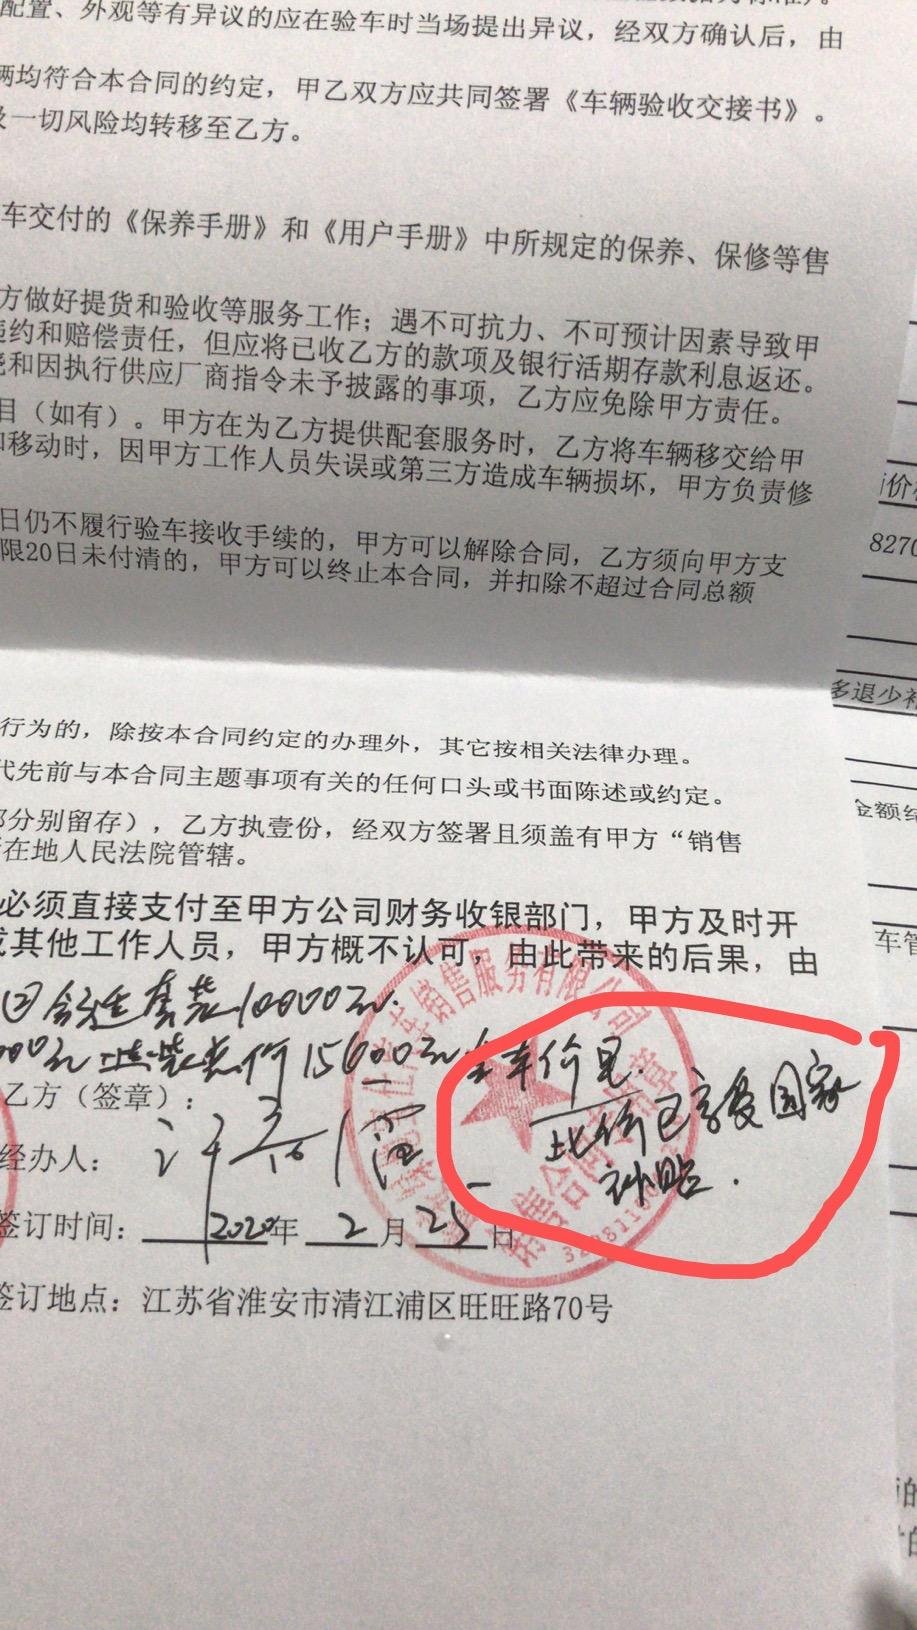 配置、外观等有异议的应在验车时当场提出异议，经双方确认后，由
辆均符合本合同的约定，甲乙双方应共同签署《车辆验收交接书》。
及一切风险均转移至乙方。
车交付的《保养手册》和《用户手册》中所规定的保养、保修等售
方做好提货和验收等服务工作；遇不可抗力、不可预计因素导致甲
违约和赔偿责任，但应将已收乙方的款项及银行活期存款利息返还。
和因执行供应厂商指令未予披露的事项，乙方应免除甲方责任。
目（如有）。甲方在为乙方提供配套服务时，乙方将车辆移交给甲
移动时，因甲方工作人员失误或第三方造成车辆损坏，甲方负责修
日仍不履行验车接收手续的，甲方可以解除合同，乙方须向甲方支
限20日未付清的，甲方可以终止本合同，并扣除不超过合同总额
行为的，除按本合同约定的办理外，其它按相关法律办理。
代先前与本合同主题事项有关的任何口头或书面陈述或约定。
部分别留存），乙方执壹份，经双方签署且须盖有甲方“销售
在地人民法院管辖。
必须直接支付至甲方公司财务收银部门，甲方及时开
或其他工作人员，甲方概不认可，由此带来的后果，由
套装10000元.
000元 价15600元 车价见.
此价已享受国家
补贴.
乙方（签章）：
经办人：
签订时间：2020年 2月 25日
签订地点：江苏省淮安市清江浦区旺旺路70号
车销售服务有限公司
销售合同专用章
价格
8270
多退少补
金额
车管
的
的